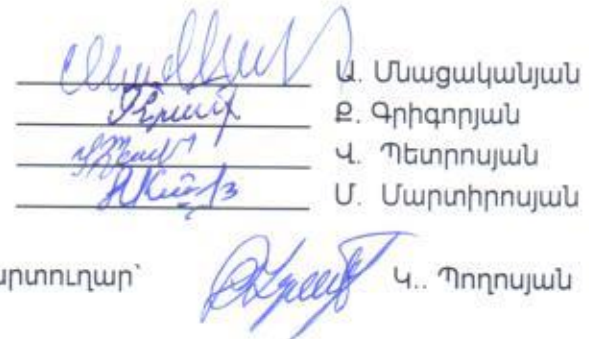 Ա. Մնացականյան
Ք. Գրիգորյան
Վ. Պետրոսյան
Մ. Մարտիրոսյան
արտուղար՝ Կ.. Պողոսյան